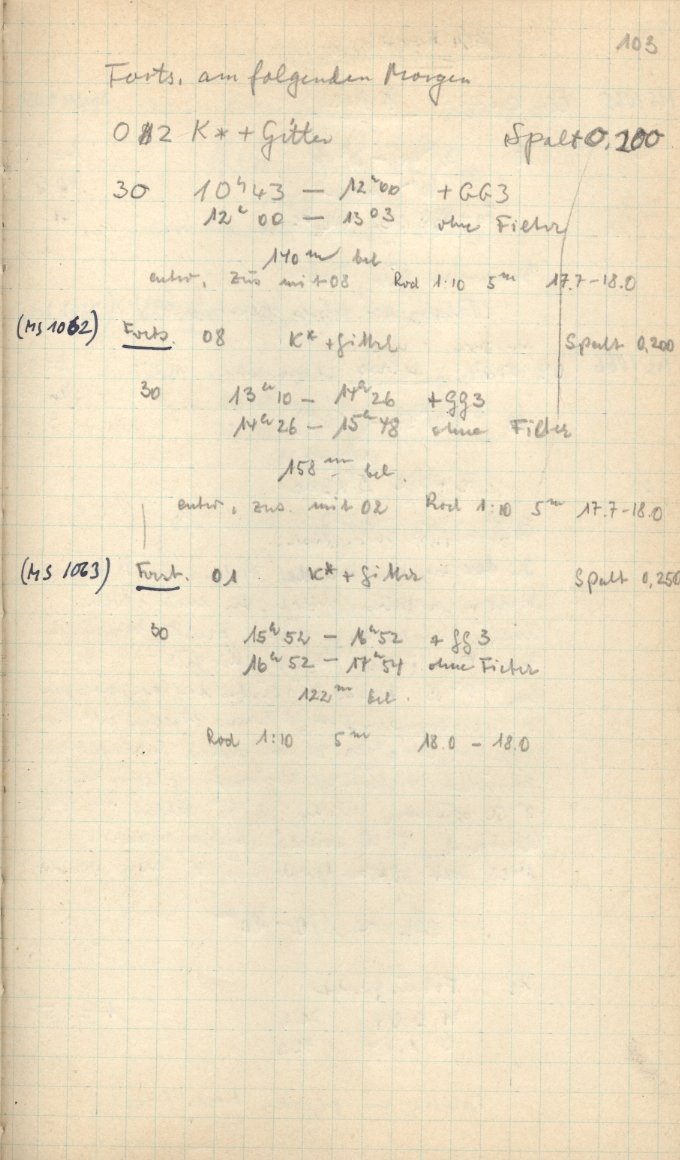 103
Forts. am folgenden Morgen
02 K* + Gitter Spalt 0,200
30 10h43 — 12h00 + GG3
12h00 — 1303 ohne Filter
140m bel
entw. zus mit 08 Rod 1:10 5m 17.7-18.0
(MS 1062) Forts. 08 K* + Gitter Spalt 0,200
30 13h10 — 14h26 + GG3
14h26 — 15h48 ohne Filter
158m bel.
entw. zus. mit 02 Rod 1:10 5m 17.7-18.0
(MS 1063) Forts. 01 K* + Gitter Spalt 0,250
30 15h52 — 16h52 + GG3
16h52 — 17h54 ohne Filter
122m bel.
Rod 1:10 5m 18.0 — 18.0